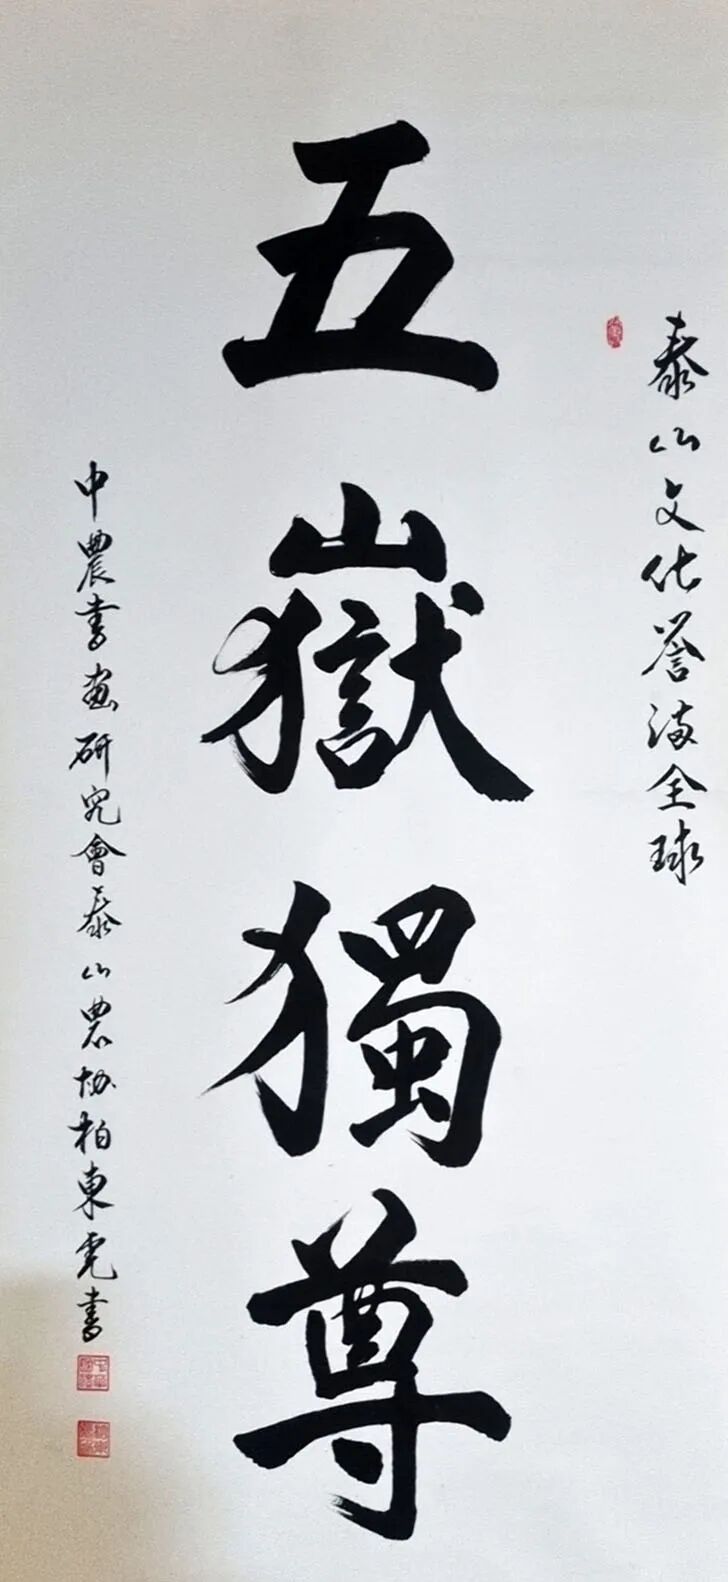 泰山文化誉满全球
五嶽獨尊
中農書画研究會泰山農协柏東亮書